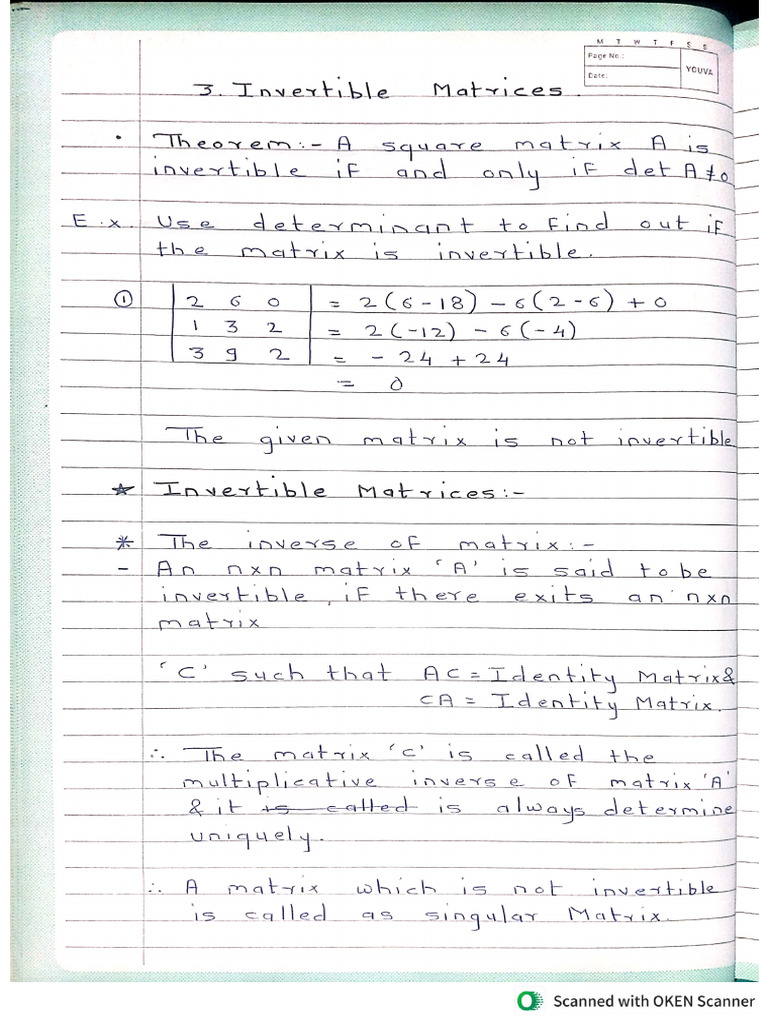 M T W T F S S
Page No.:
Date:
YOUVA
3. Invertible Matrices.
• Theorem:- A square matrix A is
invertible if and only if det A≠0
E.x. Use determinant to find out if
the matrix is invertible.
① | 2 6 0 | = 2(6-18) - 6(2-6) + 0
| 1 3 2 | = 2(-12) - 6(-4)
| 3 9 2 | = - 24 + 24
= 0
The given matrix is not invertible
☆ Invertible Matrices:-
* The inverse of matrix:-
- An nxn matrix 'A' is said to be
invertible, if there exits an nxn
matrix
'C' such that AC = Identity Matrix &
CA = Identity Matrix.
∴ The matrix 'C' is called the
multiplicative inverse of matrix 'A'
& it is called is always determine
uniquely.
∴ A matrix which is not invertible
is called as singular Matrix.
Scanned with OKEN Scanner